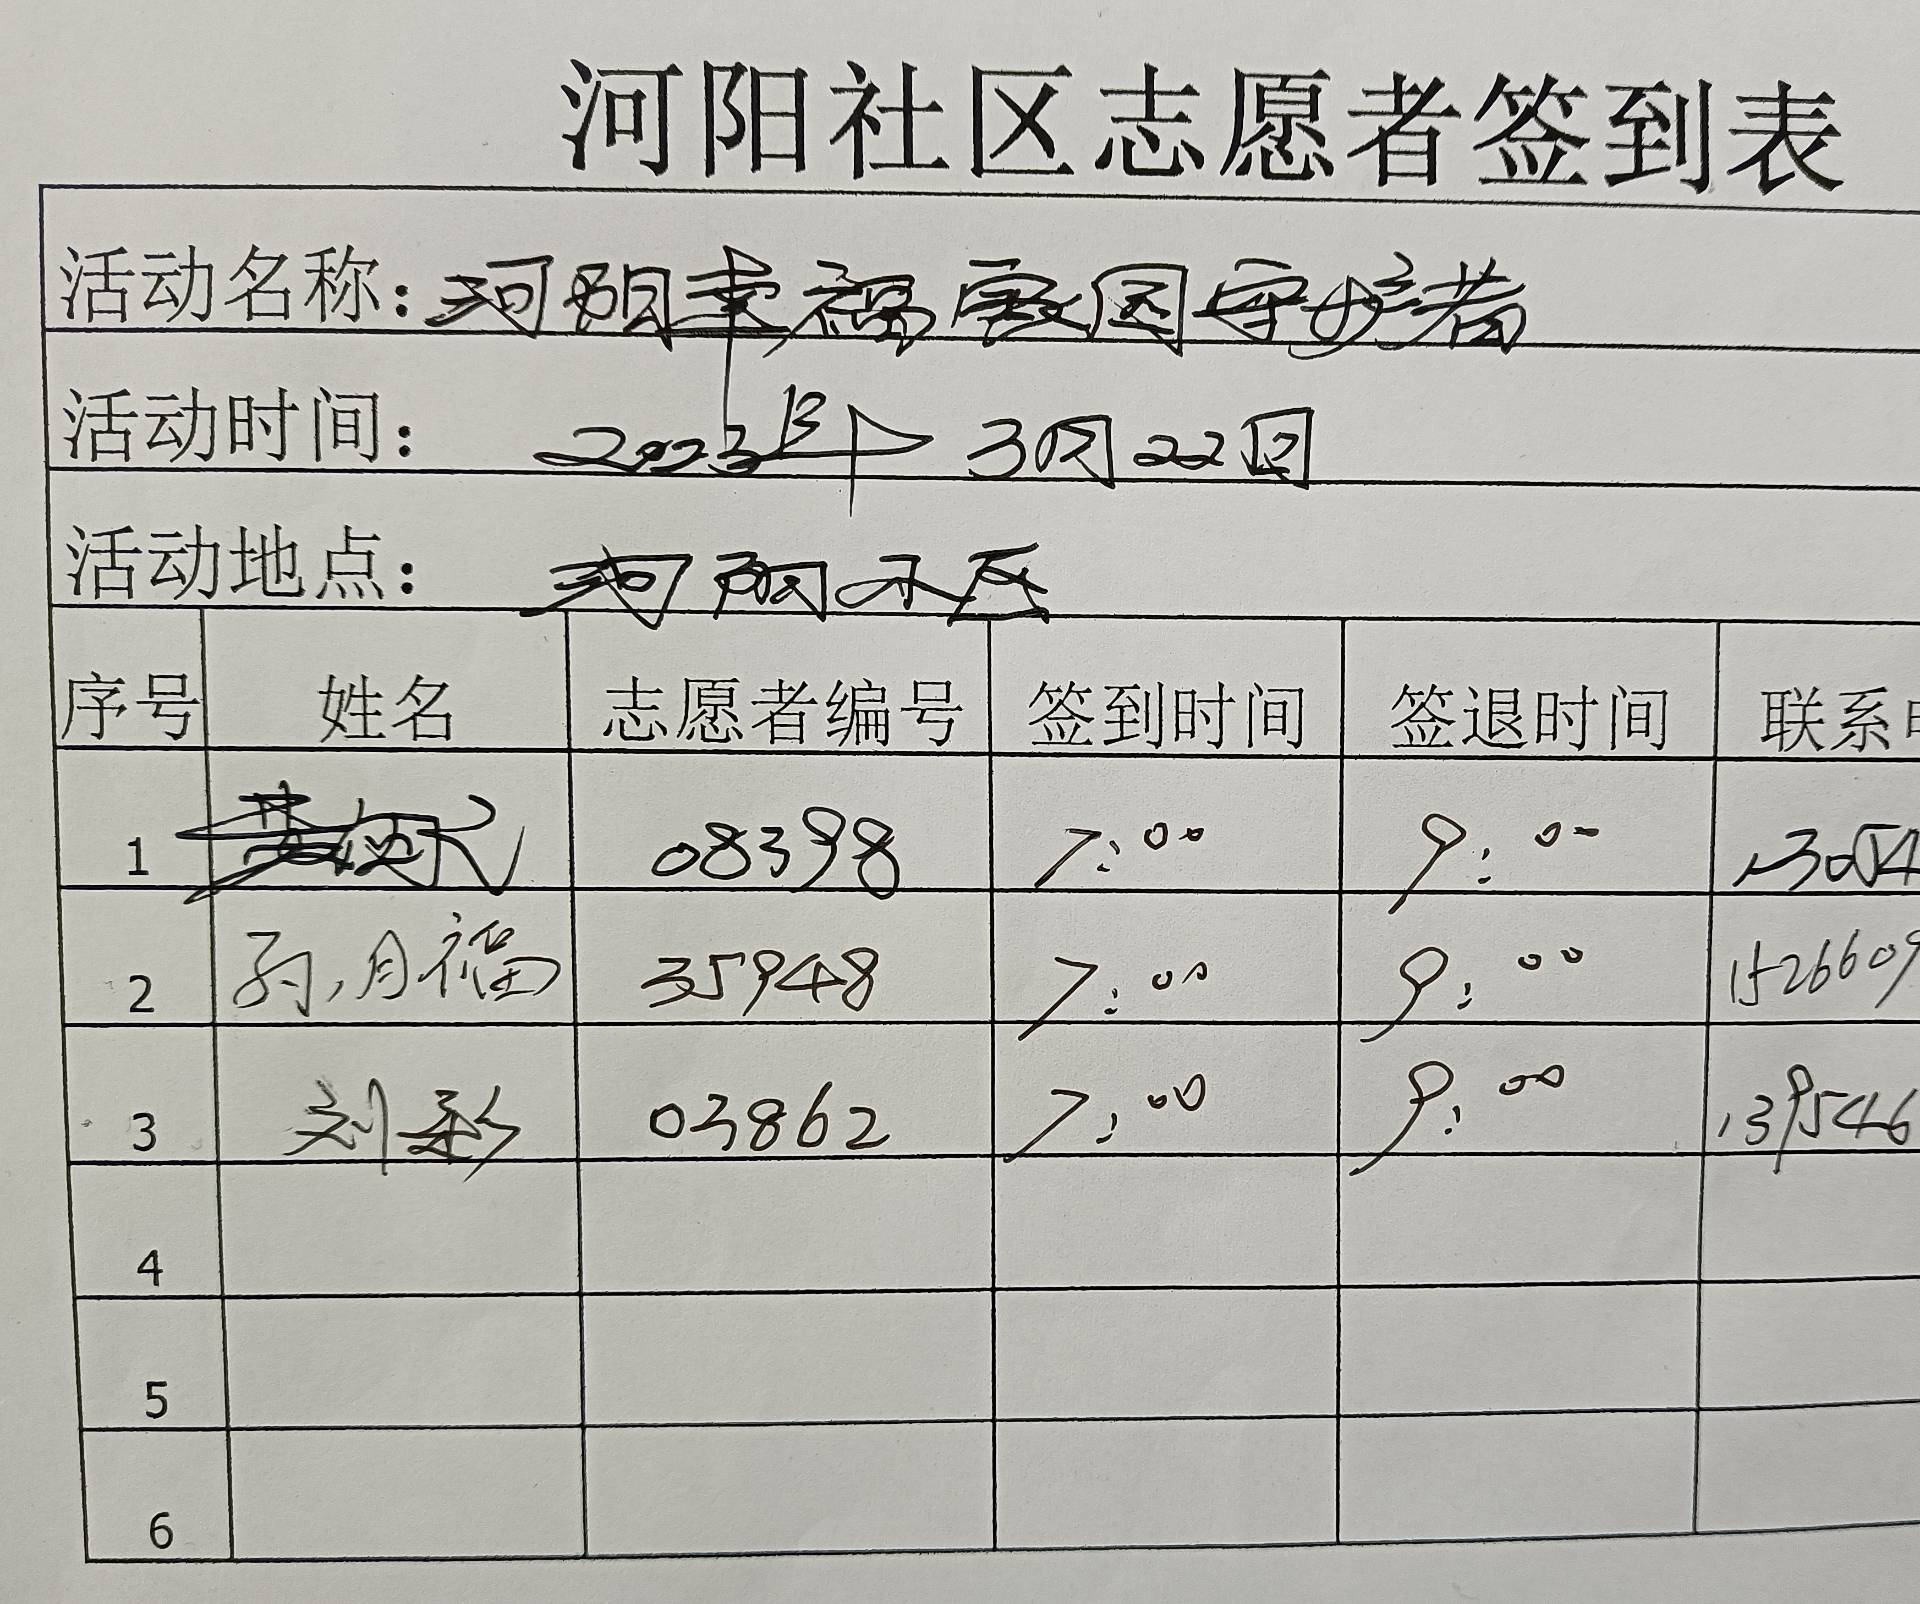 河阳社区志愿者签到表
活动名称：河阳幸福家园守护者
活动时间： 2023年 3月22日
活动地点： 河阳小区
序号 姓名 志愿者编号 签到时间 签退时间 联系
1 08398 7:00 9:00 13054
2 孙月福 35948 7:00 9:00 1526609
3 刘彩 03862 7:00 9:00 139546
4
5
6